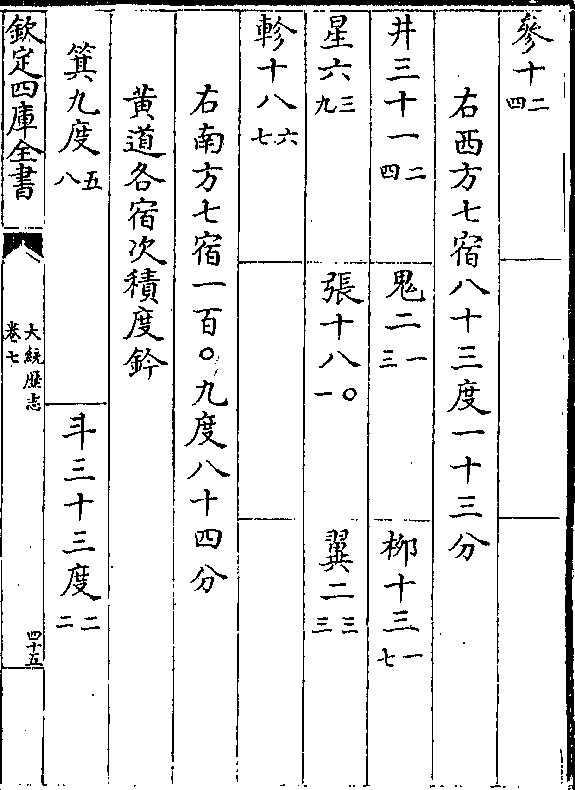 參十二四
右西方七宿八十三度一十三分
井三十一二四　鬼二一三　柳十三一七
星六三九　張十八〇一　翼二三三
軫十八六七
右南方七宿一百〇九度八十四分
黄道各宿次積度鈐
箕九度五八　斗三十三度二二
欽定四庫全書
大統歴志
卷七
四十五